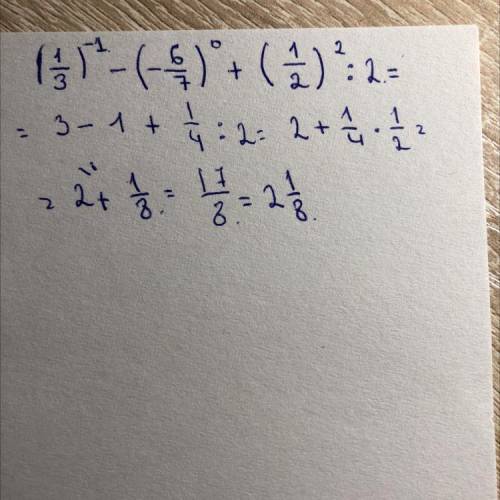 (1/3)⁻¹ − (−6/7)⁰ + (1/2)² : 2 =
= 3 − 1 + 1/4 : 2 = 2 + 1/4 · 1/2 =
= 2 + 1/8 = 17/8 = 2 1/8.